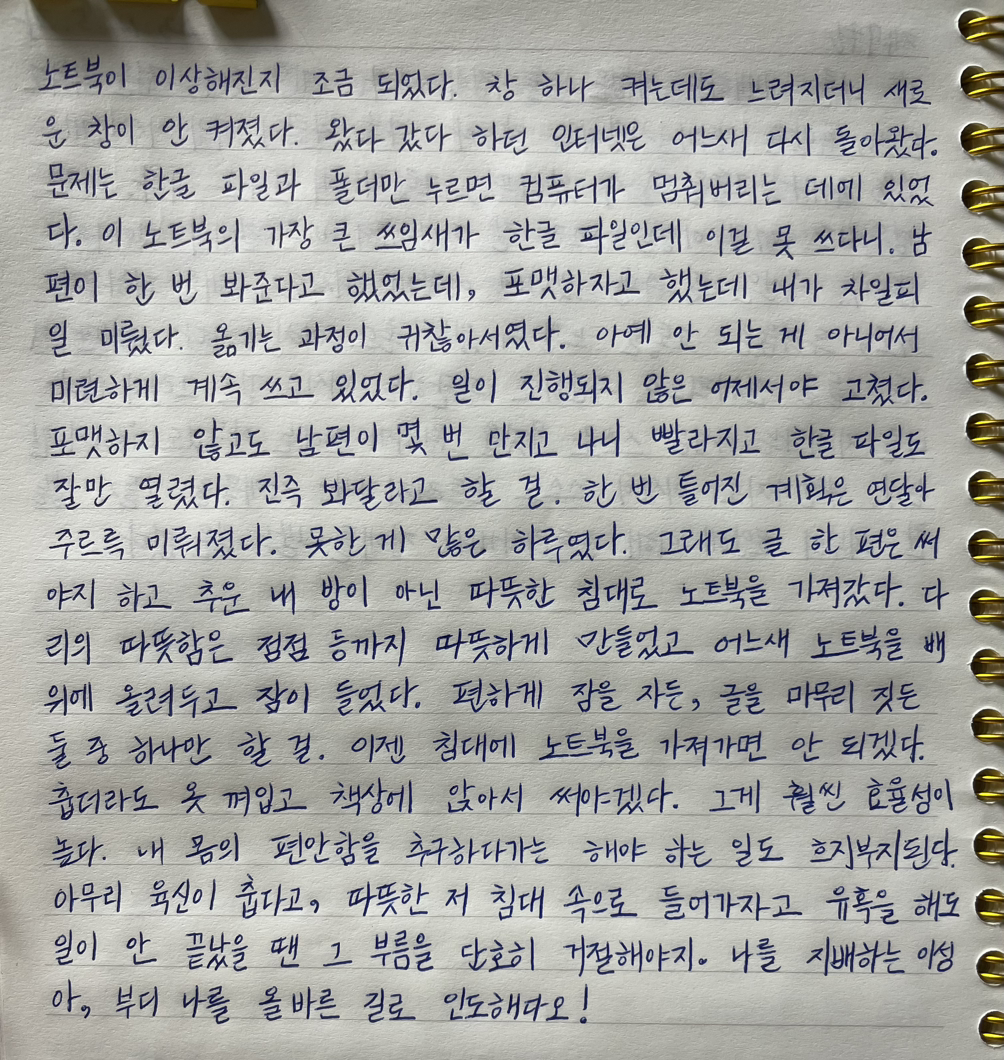 노트북이 이상해진지 조금 되었다. 창 하나 켜는데도 느려지더니 새로
운 창이 안 켜졌다. 왔다 갔다 하던 인터넷은 어느새 다시 돌아왔다.
문제는 한글 파일과 폴더만 누르면 컴퓨터가 멈춰버리는 데에 있었
다. 이 노트북의 가장 큰 쓰임새가 한글 파일인데 이걸 못 쓰다니. 남
편이 한 번 봐준다고 했었는데, 포맷하자고 했는데 내가 차일피
일 미뤘다. 옮기는 과정이 귀찮아서였다. 아예 안 되는 게 아니어서
미련하게 계속 쓰고 있었다. 일이 진행되지 않은 어제서야 고쳤다.
포맷하지 않고도 남편이 몇 번 만지고 나니 빨라지고 한글 파일도
잘만 열렸다. 진즉 봐달라고 할 걸. 한 번 틀어진 계획은 연달아
주르륵 미뤄졌다. 못한 게 많은 하루였다. 그래도 글 한 편은 써
야지 하고 추운 내 방이 아닌 따뜻한 침대로 노트북을 가져갔다. 다
리의 따뜻함은 점점 등까지 따뜻하게 만들었고 어느새 노트북을 배
위에 올려두고 잠이 들었다. 편하게 잠을 자든, 글을 마무리 짓든
둘 중 하나만 할 걸. 이젠 침대에 노트북을 가져가면 안 되겠다.
춥더라도 옷 껴입고 책상에 앉아서 써야겠다. 그게 훨씬 효율성이
높다. 내 몸의 편안함을 추구하다가는 해야 하는 일도 흐지부지된다.
아무리 육신이 춥다고, 따뜻한 저 침대 속으로 들어가자고 유혹을 해도
일이 안 끝났을 땐 그 부름을 단호히 거절해야지. 나를 지배하는 이성
아, 부디 나를 올바른 길로 인도해다오!